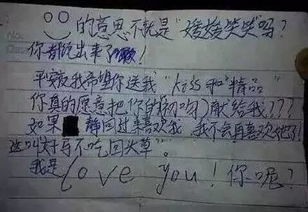 的意思不就是"嘻嘻笑笑"吗?
你都说出来了
平安夜我希望你送我"kiss和"精品"
你真的愿意把你的初吻献给我???
如果 静回过来喜欢我,我不会再喜欢她了!
这叫好马不吃回头草"。
我是love you!你呢?